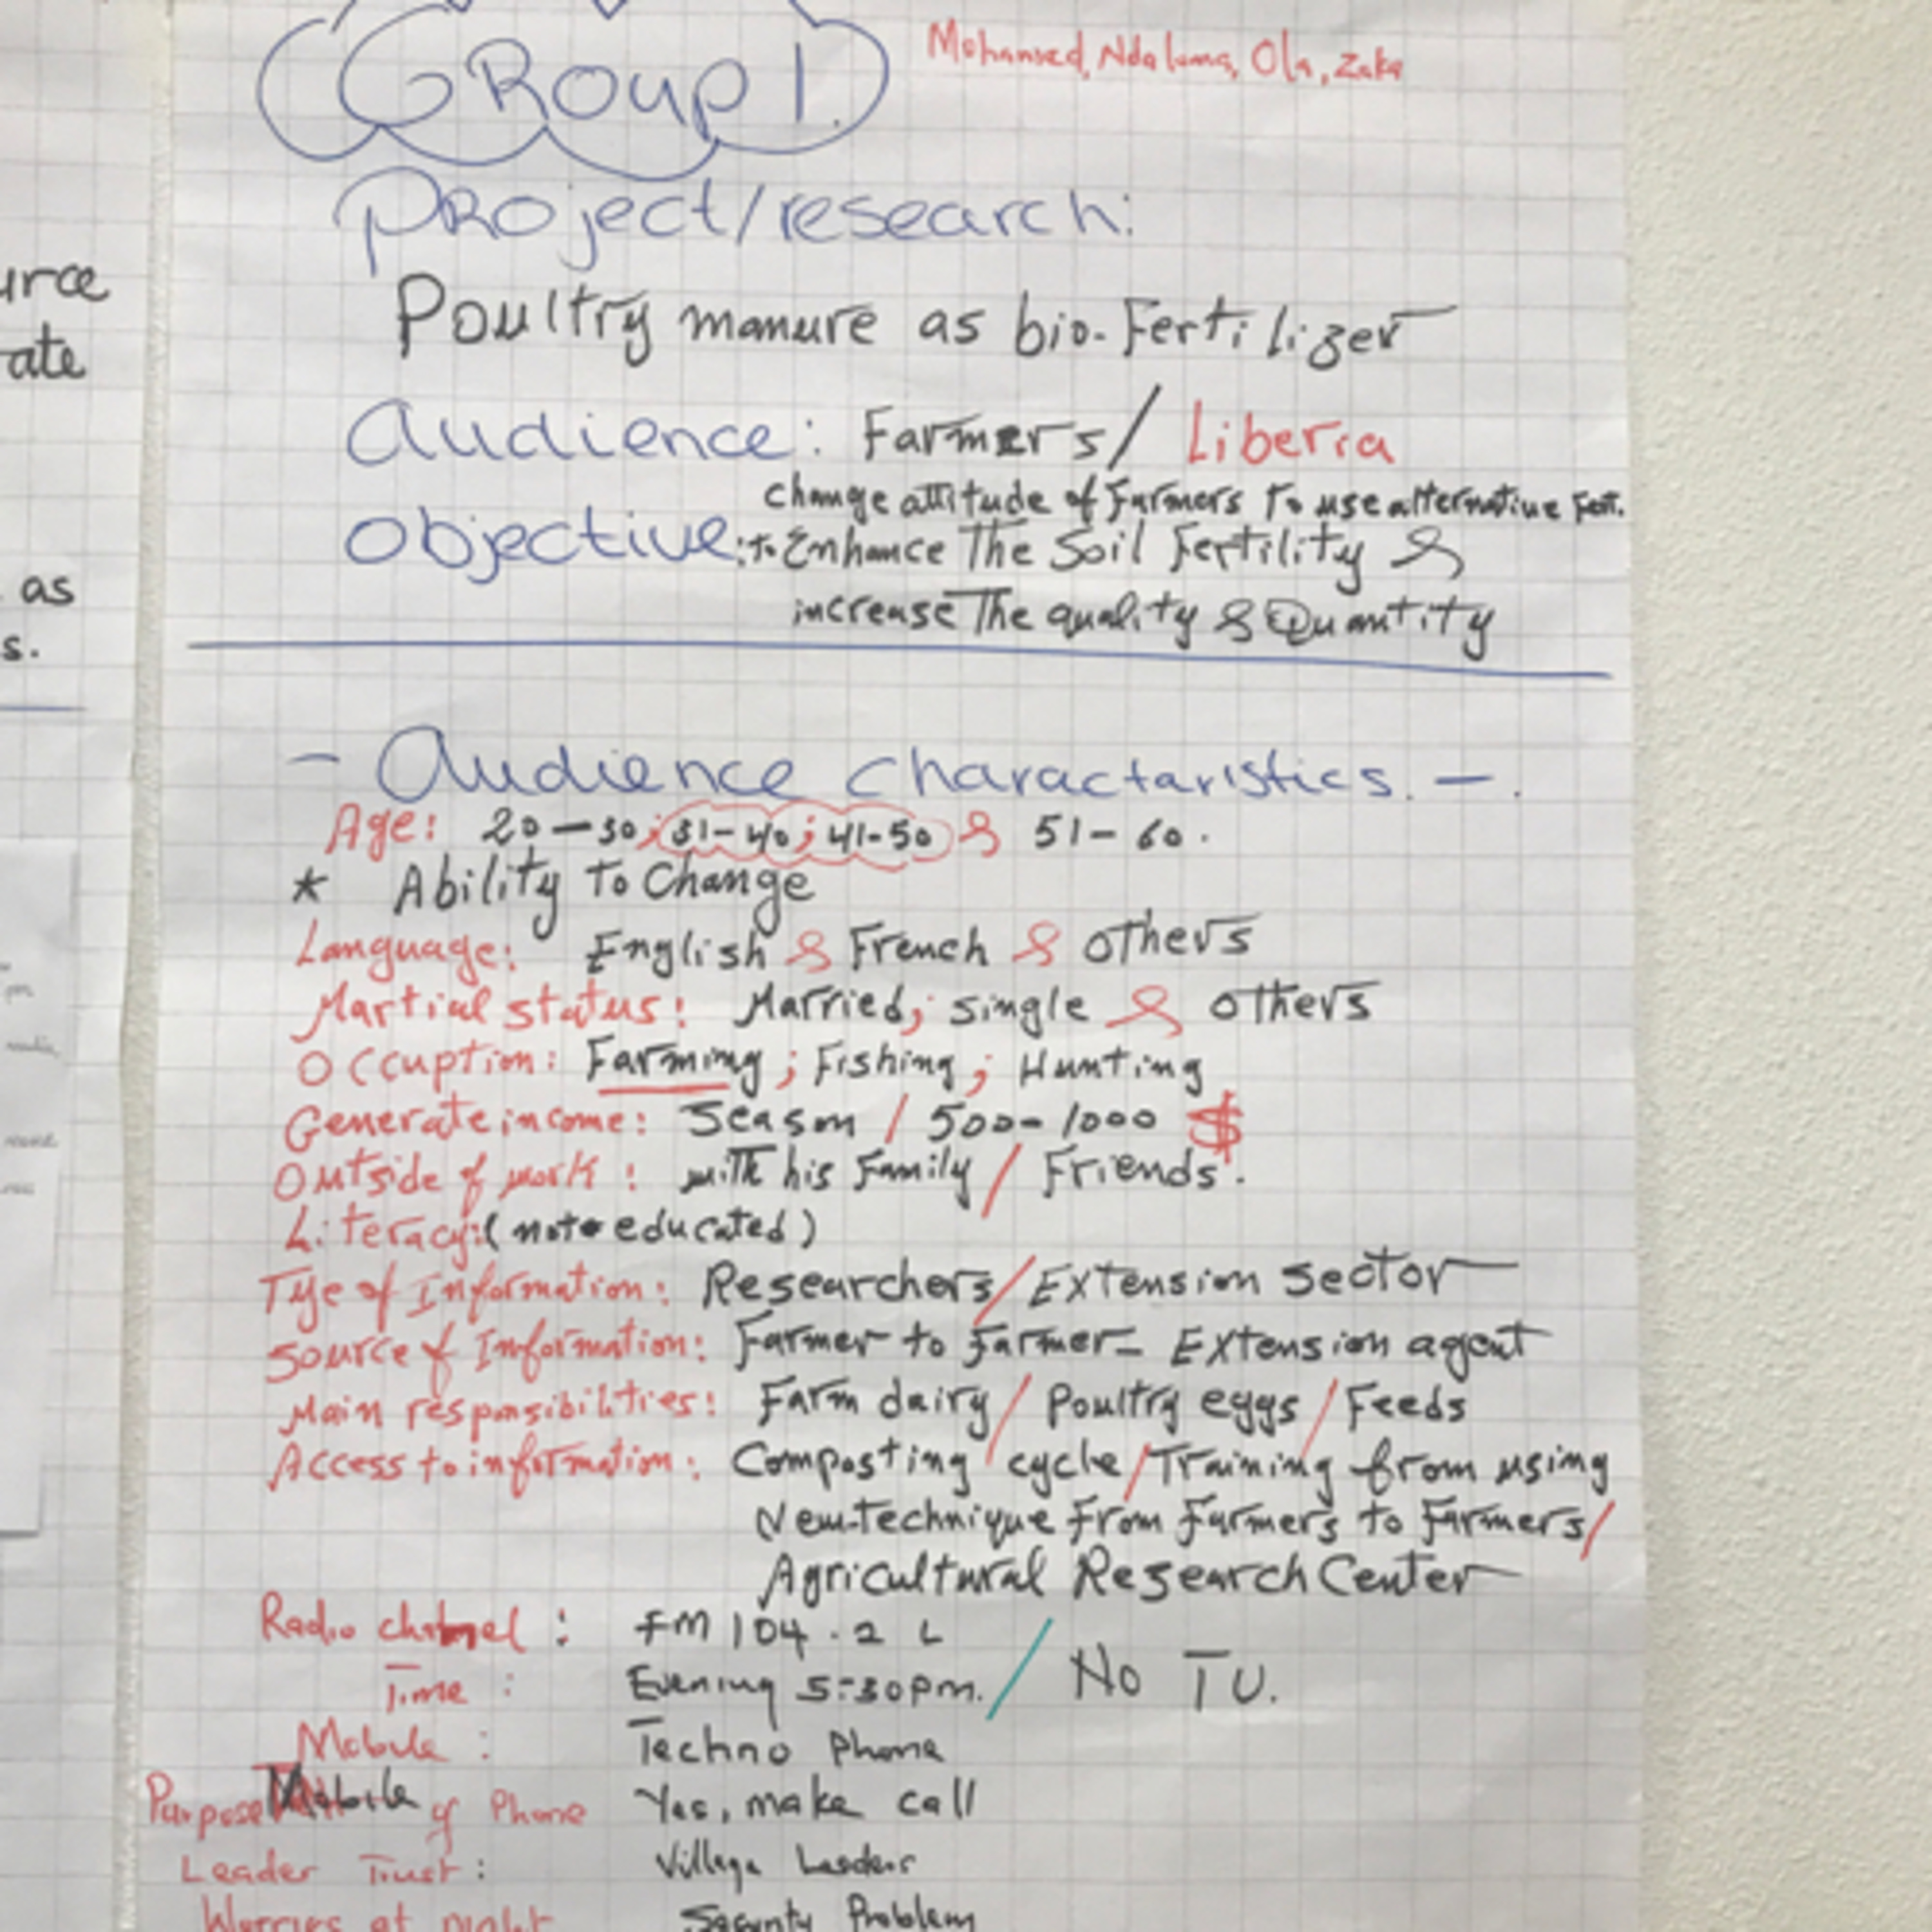 urce
ate
as
s.
GRoup 1.
Mohamed, Ndaloma, Ola, Zaka
PRoject/research:
Poultry manure as bio-Fertilizer
Audience: Farmers / Liberia
change attitude of Farmers To use alternative Fert.
Objective: to Enhance The Soil Fertility &
increase The quality & Quantity
- Audience charactaristics. -.
Age: 20-30; 31-40; 41-50 & 51-60.
* Ability To Change
Language: English & French & others
Martial status: Married; single & others
Occuption: Farming; Fishing; Hunting
Generate income: Season / 500-1000 $
Outside of work: with his Family / Friends.
Literacy: (not educated)
Tye of Information: Researchers / Extension Sector
Source of Information: Farmer to Farmer - Extension agent
Main responsibilities: Farm dairy / Poultry eggs / Feeds
Access to information: Composting cycle / Training from using
New-technique From Farmers to Farmers /
Agricultural Research Center
Radio channel: FM 104.2 L
Time: Evening 5:30pm. / No TV.
Mobile: Techno Phone
Purpose Mobile of Phone Yes, make call
Leader Trust: Village Leaders
Worries at night Security Problem